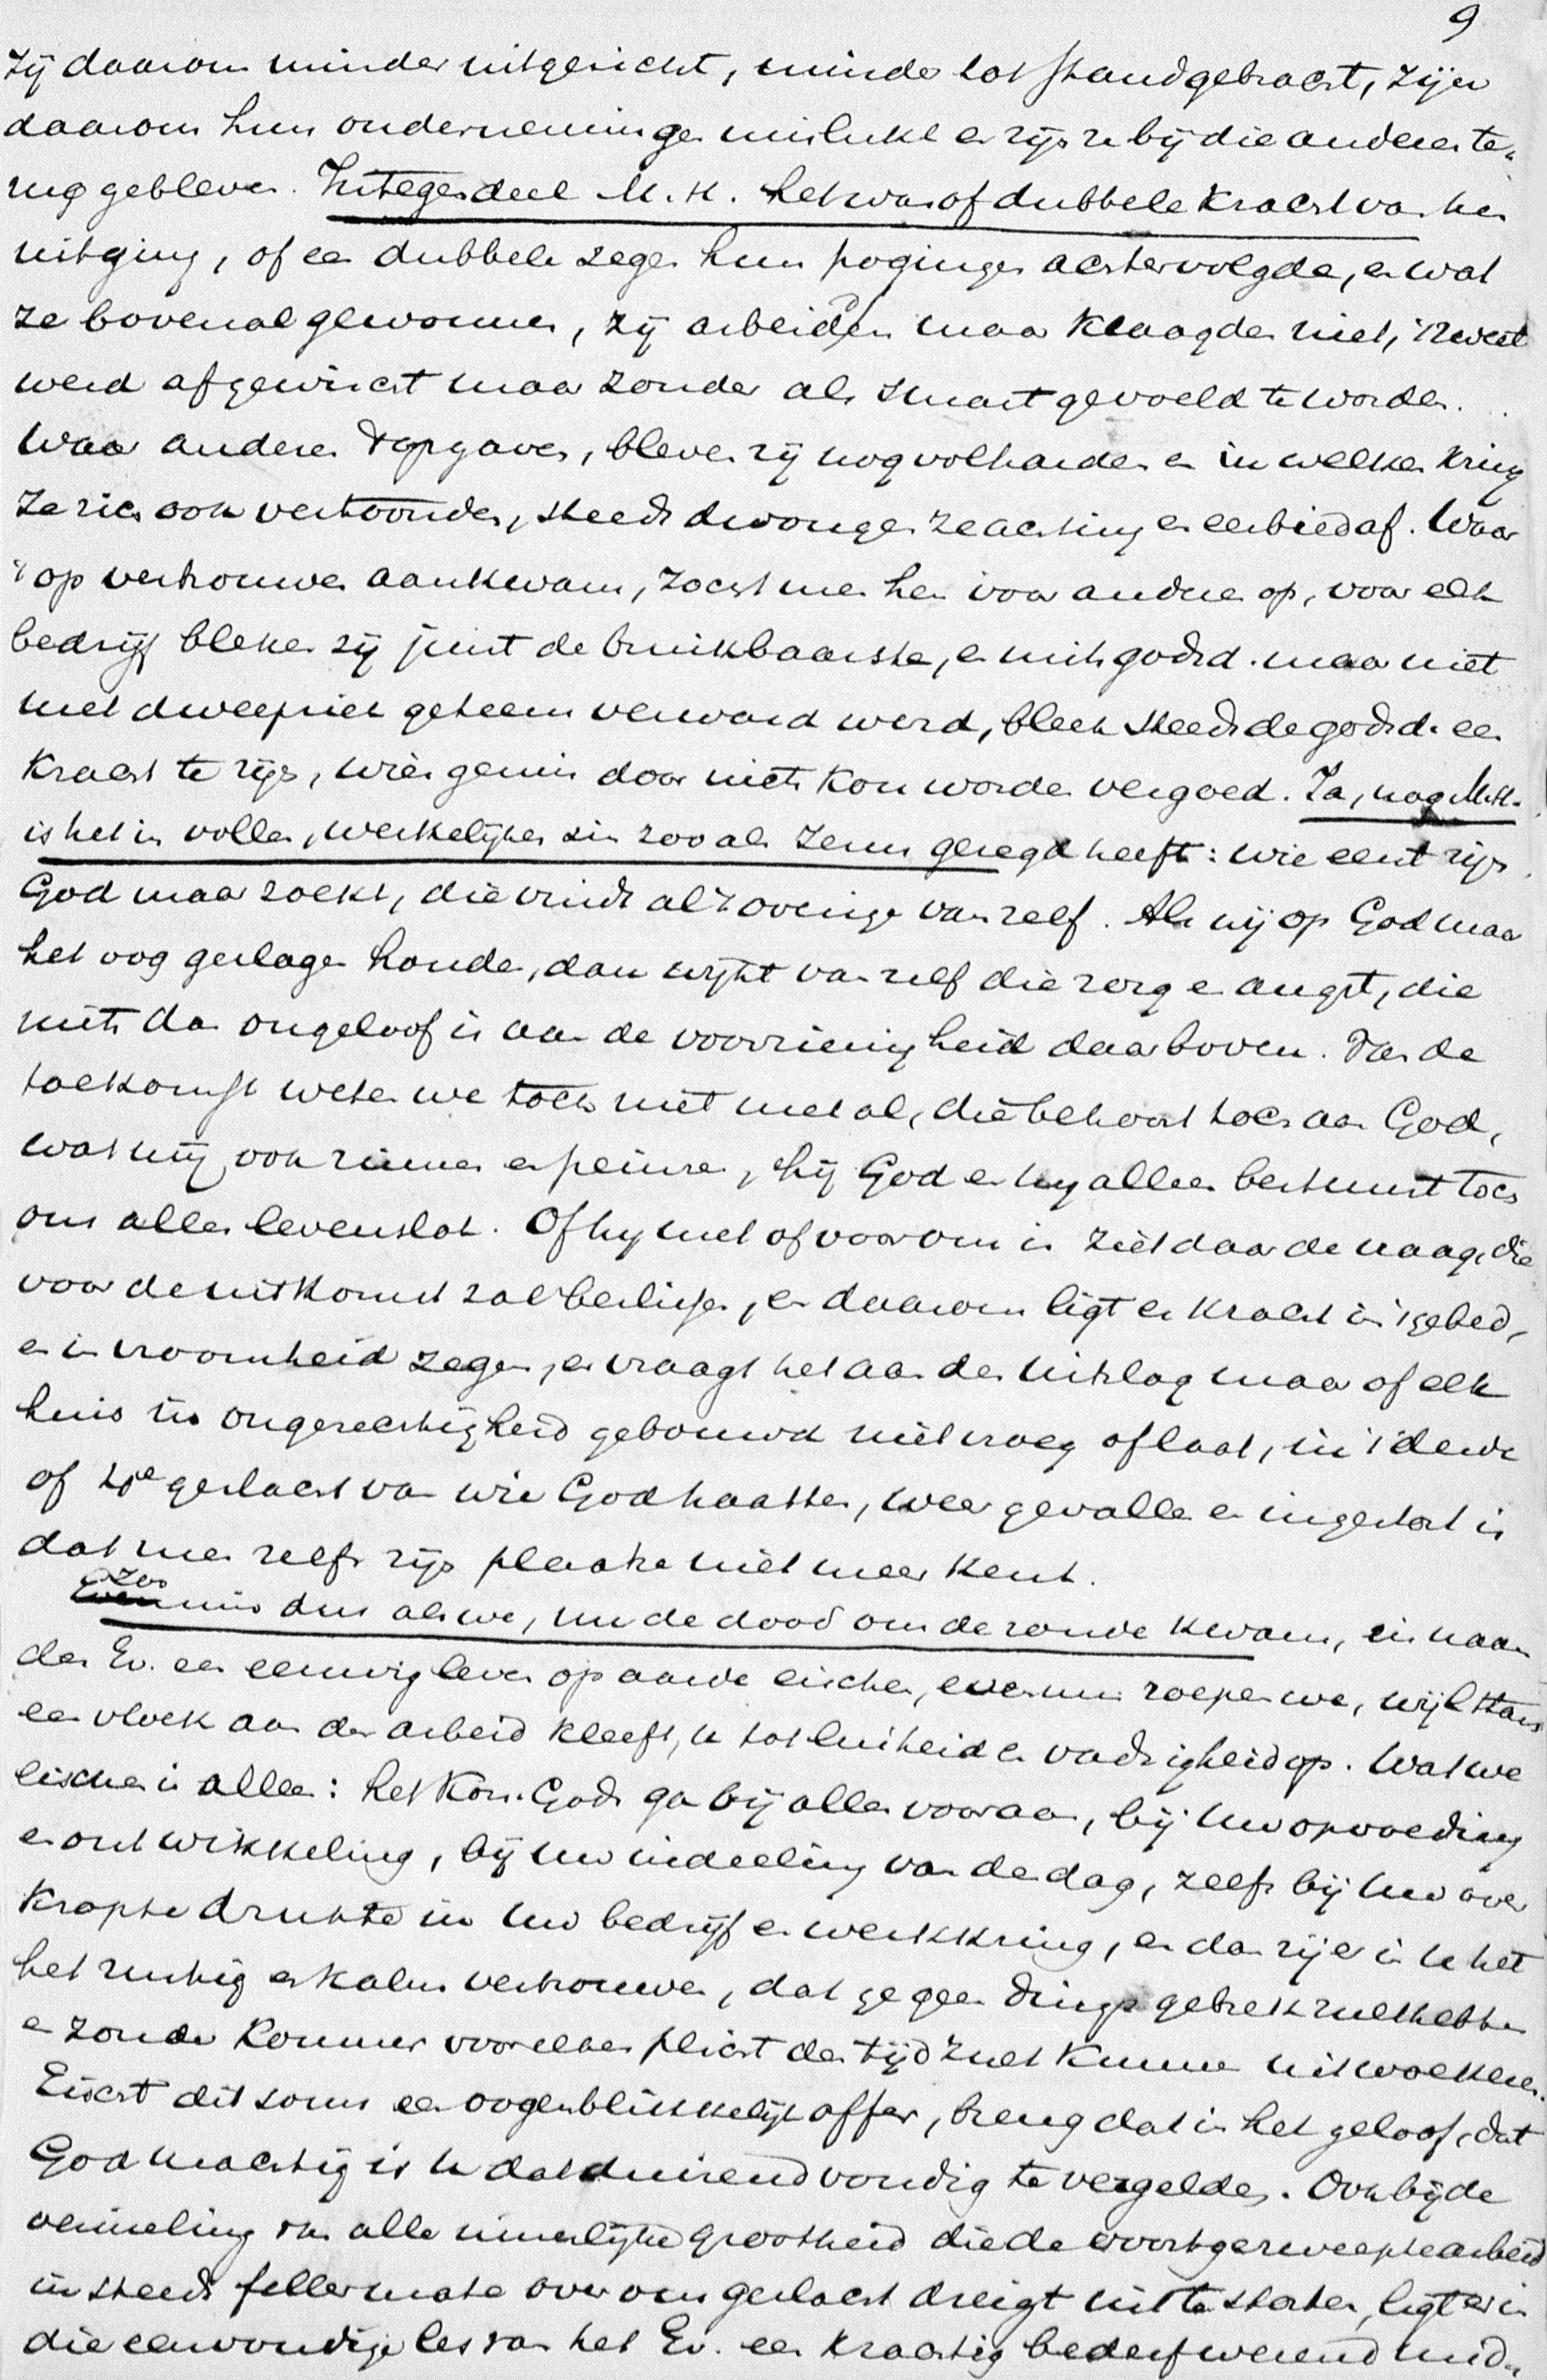 9
zij daarom minder uitgericht, minder tot stand gebracht, zijn
daarom hun ondernemingen mislukt en zijn ze bij die anderen te-
rug gebleven. Integendeel M. H. het was of dubbele kracht van hen
uitging, of een dubbele zegen hun pogingen achtervolgde, en wat
ze bovenal gewonnen, zij arbeidden maar klaagden niet, 't zweet
werd afgewischt maar zonder als smart gevoeld te worden.
Waar anderen 't opgaven, bleven zij nog volharden en in welken kring
ze zich ook vertoonden, steeds dwongen ze achting en eerbied af. Waar
't op vertrouwen aankwam, zocht men hen voor anderen op, voor elk
bedrijf bleken zij juist de bruikbaarste, en mits godsd. maar niet
met dweepziek geteem verward werd, bleek steeds de godsd. een
kracht te zijn, wier gemis door niets kon worden vergoed. Ja, nog M.H.
is het in vollen, werkelijken zin zooals Jezus gezegd heeft: wie eerst zijn
God maar zoekt, die vindt al 't overige van zelf. Als wij op God maar
het oog geslagen houden, dan wijkt van zelf die zorg en angst, die
niets dan ongeloof is aan de voorzienigheid daarboven. Van de
toekomst weten we toch niet met al, die behoort toch aan God,
wat wij ook zinnen en peinzen, hij God en hij alleen bestuurt toch
ons aller levenslot. Of hij met of voor ons is ziet daar de vraag, die
voor de uitkomst zal beslissen, en daarom ligt er kracht in 't gebed,
en in vroomheid zegen, en vraagt het aan den uitslag maar of elk
huis in ongerechtigheid gebouwd niet vroeg of laat, in 't derde
of 4de geslacht van wie God haatten, weer gevallen en ingestort is
dat men zelfs zijn plaatse niet meer kent.
Zoo min dus als we, nu de dood om de zonde kwam, in naam
des Ev. een eeuwig leven op aarde eischen, evenmin roepen we, wijl thans
een vloek aan den arbeid kleeft, u tot luiheid en vadsigheid op. Wat we
eischen is alleen: het Kon. Gods ga bij alles vooraan, bij uw opvoeding
en ontwikkeling, bij uw indeeling van den dag, zelfs bij uw over
kropte drukte in uw bedrijf en werkkring, en dan zij er in u het
het rustig en kalm vertrouwen, dat ge geen dings gebrek zult hebben
en zonder kommer voor elken plicht den tijd zult kunnen uitwoekeren.
Eischt dit soms een oogenblikkelijk offer, breng dat in het geloof, dat
God machtig is u dat duizendvoudig te vergelden. Ook bij de
vernieling van alle innerlijke grootheid die de voortgezweepte arbeid
in steeds feller mate over ons geslacht dreigt uit te storten, ligt er in
die eenvoudige les van het Ev. een krachtig bederfwerend mid-